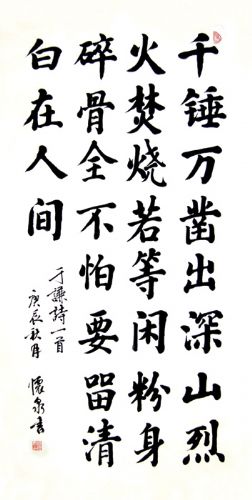 千锤万凿出深山烈
火焚烧若等闲粉身
碎骨全不怕要留清
白在人间
于謙詩一首
庚辰秋月 懷泉書